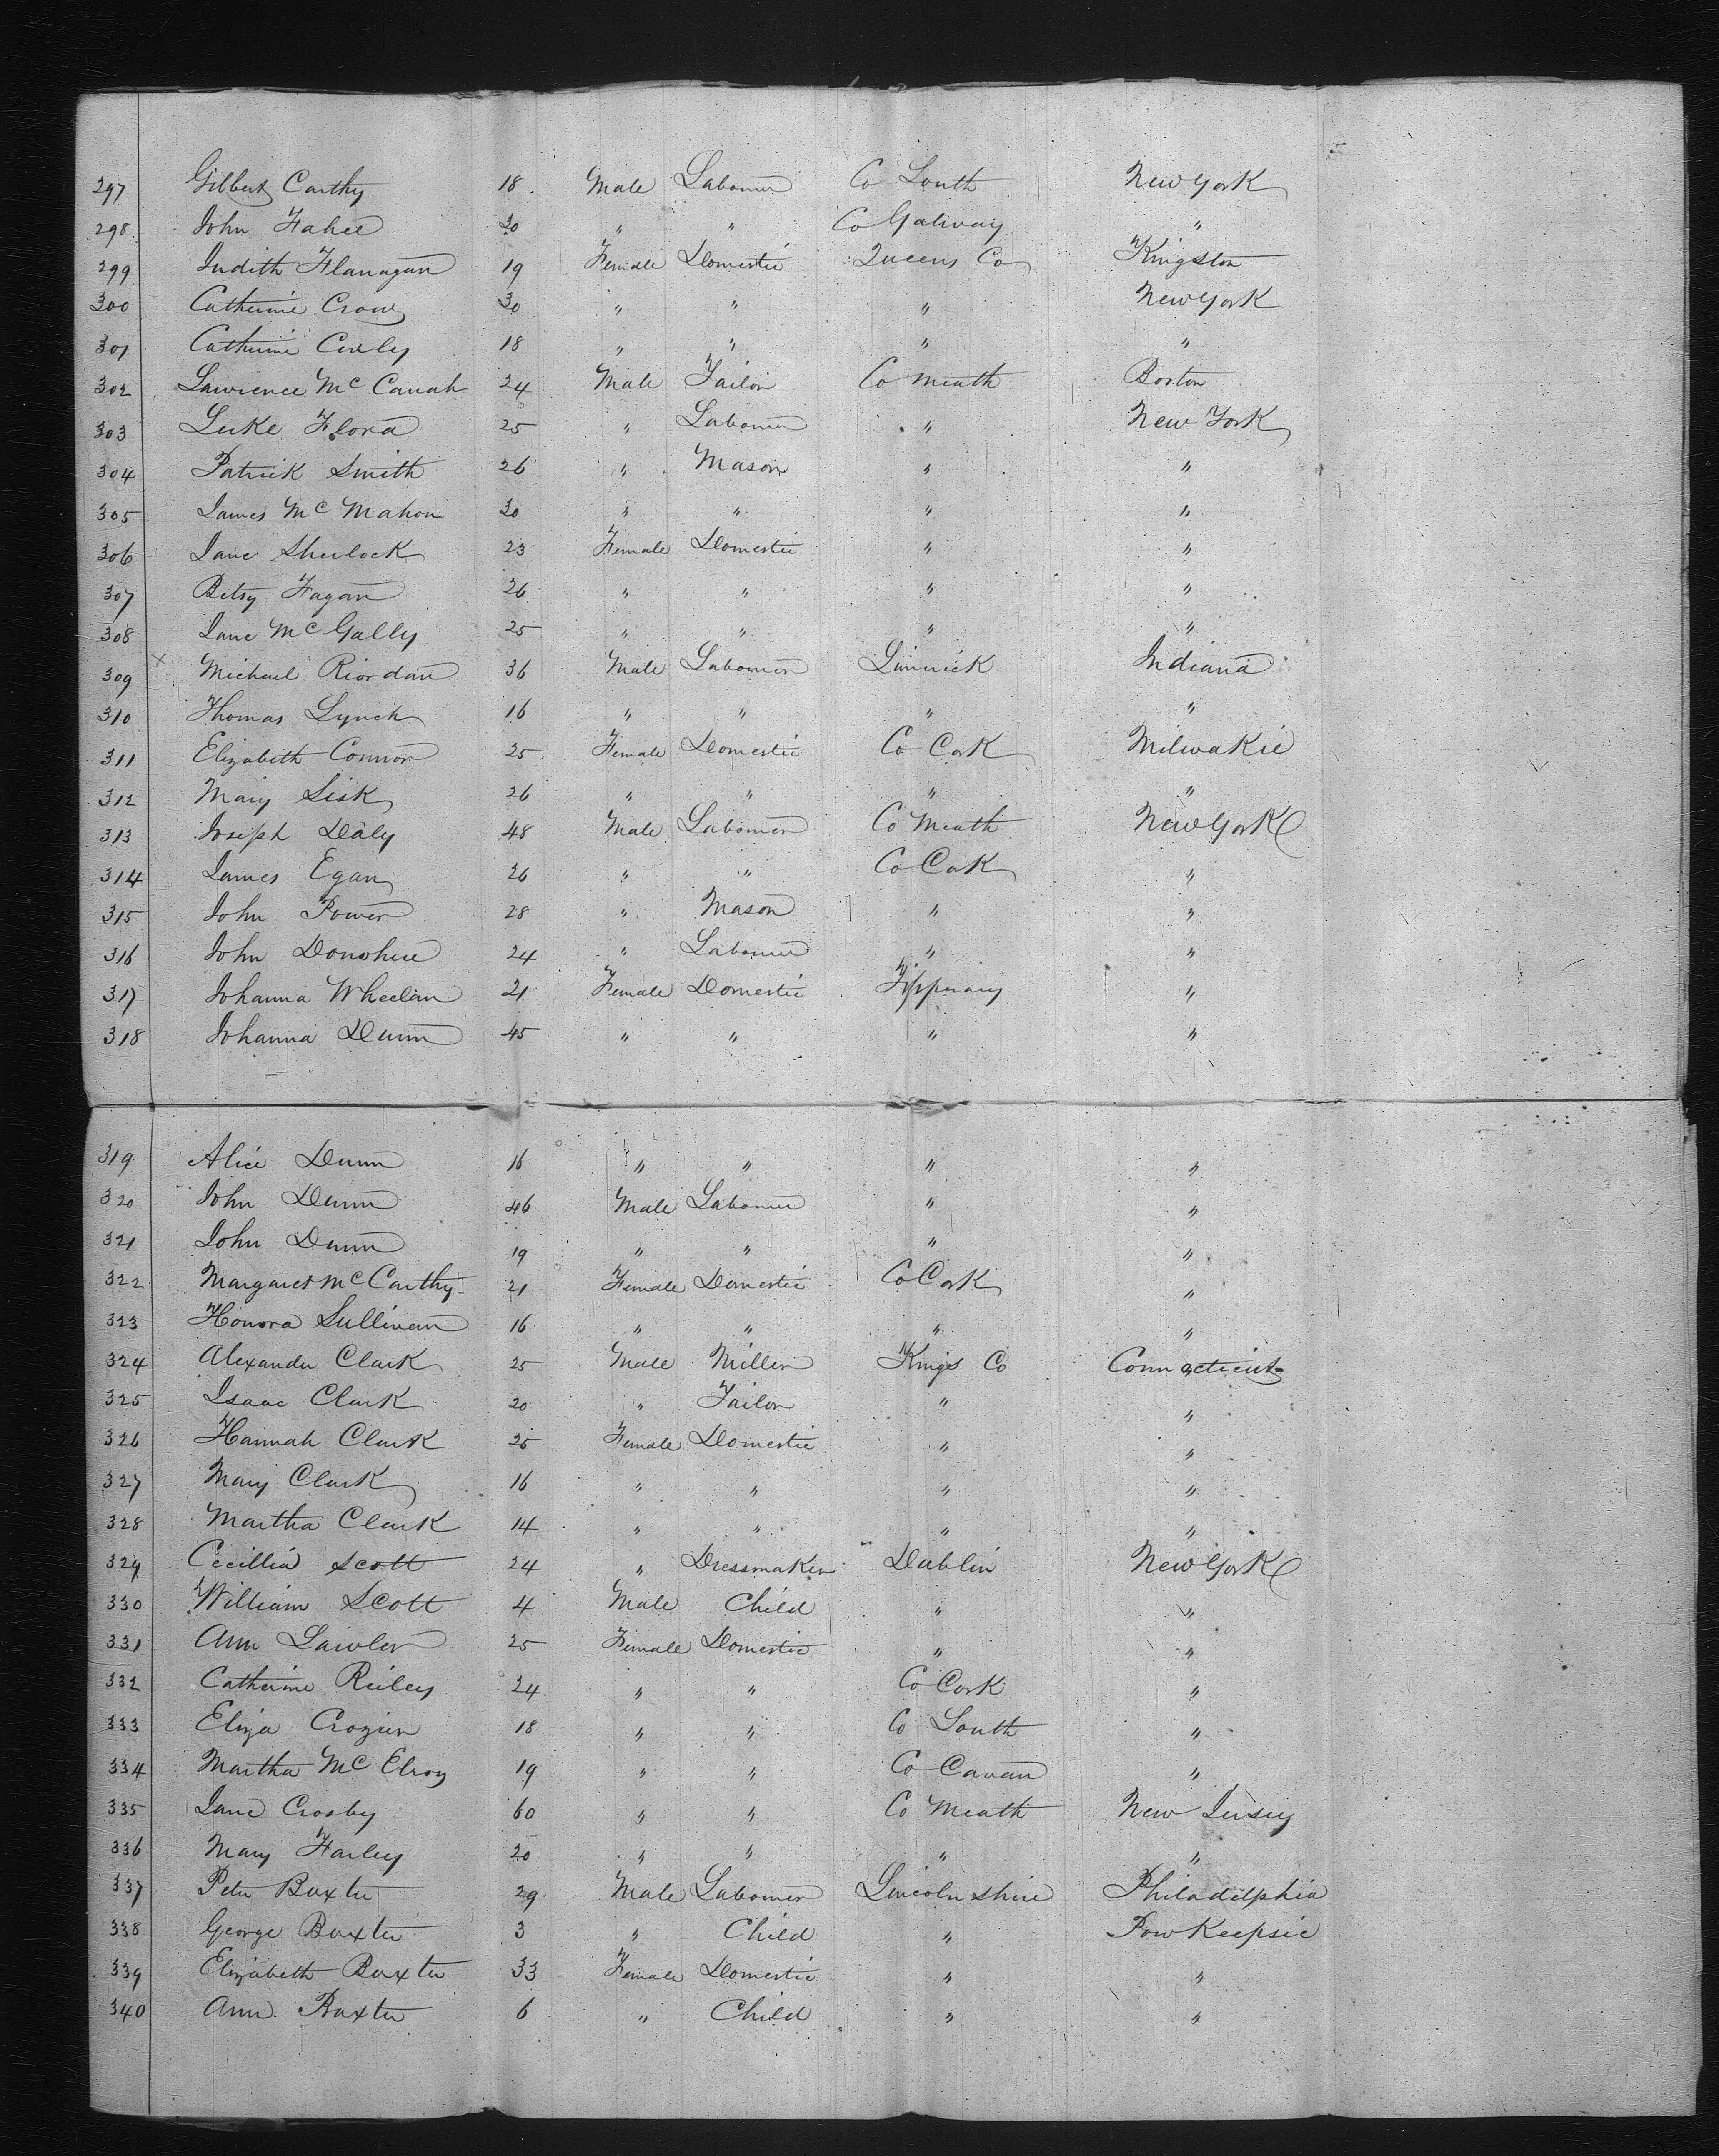 297 Gilbert Carthy 18. Male Labourer Co Louth New York
298 John Fahee 30 " " Co Galway "
299 Judith Flanagan 19 Female Domestic Queens Co Kingston
300 Catherine Crow 30 " " " New York
301 Catherine 18 " " " "
302 Lawrence Mc Canah 24 Male Tailor Co Meath Boston
303 Luke Flora 25 " Labourer " New York
304 Patrick Smith 26 " Mason " "
305 James Mc Mahon 30 " " " "
306 Jane Sherlock 23 Female Domestic " "
307 Betsy Fagan 26 " " " "
308 Jane Mc Gally 25 " " " "
309 x Michael Riordan 36 Male Labourer Limrick Indiana
310 Thomas Lynch 16 " " " "
311 Elizabeth Connor 25 Female Domestic Co Cork Milwakie
312 Mary Sisk 26 " " " "
313 Joseph Daly 48 Male Labourer Co Meath New York
314 James Egan 26 " " Co Cork "
315 John Power 28 " Mason " "
316 John Donohue 24 " Labourer " "
317 Johanna Wheelan 21 Female Domestic Tipperary "
318 Johanna Dunn 45 " " " "
319 Alice Dunn 16 " " " "
320 John Dunn 46 Male Labourer " "
321 John Dunn 19 " " " "
322 Margaret Mc Carthy 21 Female Domestic Co Cork "
323 Honora Sullivan 16 " " " "
324 Alexander Clark 25 Male Miller Kings Co Connecticut
325 Isaac Clark 20 " Tailor " "
326 Hannah Clark 25 Female Domestic " "
327 Mary Clark 16 " " " "
328 Martha Clark 14 " " " "
329 Cecillia Scott 24 " Dressmaker Dublin New York
330 William Scott 4 Male Child " "
331 Ann Lawler 25 Female Domestic " "
332 Catherine Reiley 24 " " Co Cork "
333 Eliza Crozier 18 " " Co Louth "
334 Martha Mc Elroy 19 " " Co Cavan "
335 Jane Crosby 60 " " Co Meath New Jersey
336 Mary Farley 20 " " " "
337 Peter Baxter 29 Male Labourer Lincoln shire Philadelphia
338 George Baxter 3 " Child " Pow Keepsie
339 Elizabeth Baxter 33 Female Domestic " "
340 Ann Baxter 6 " Child " "